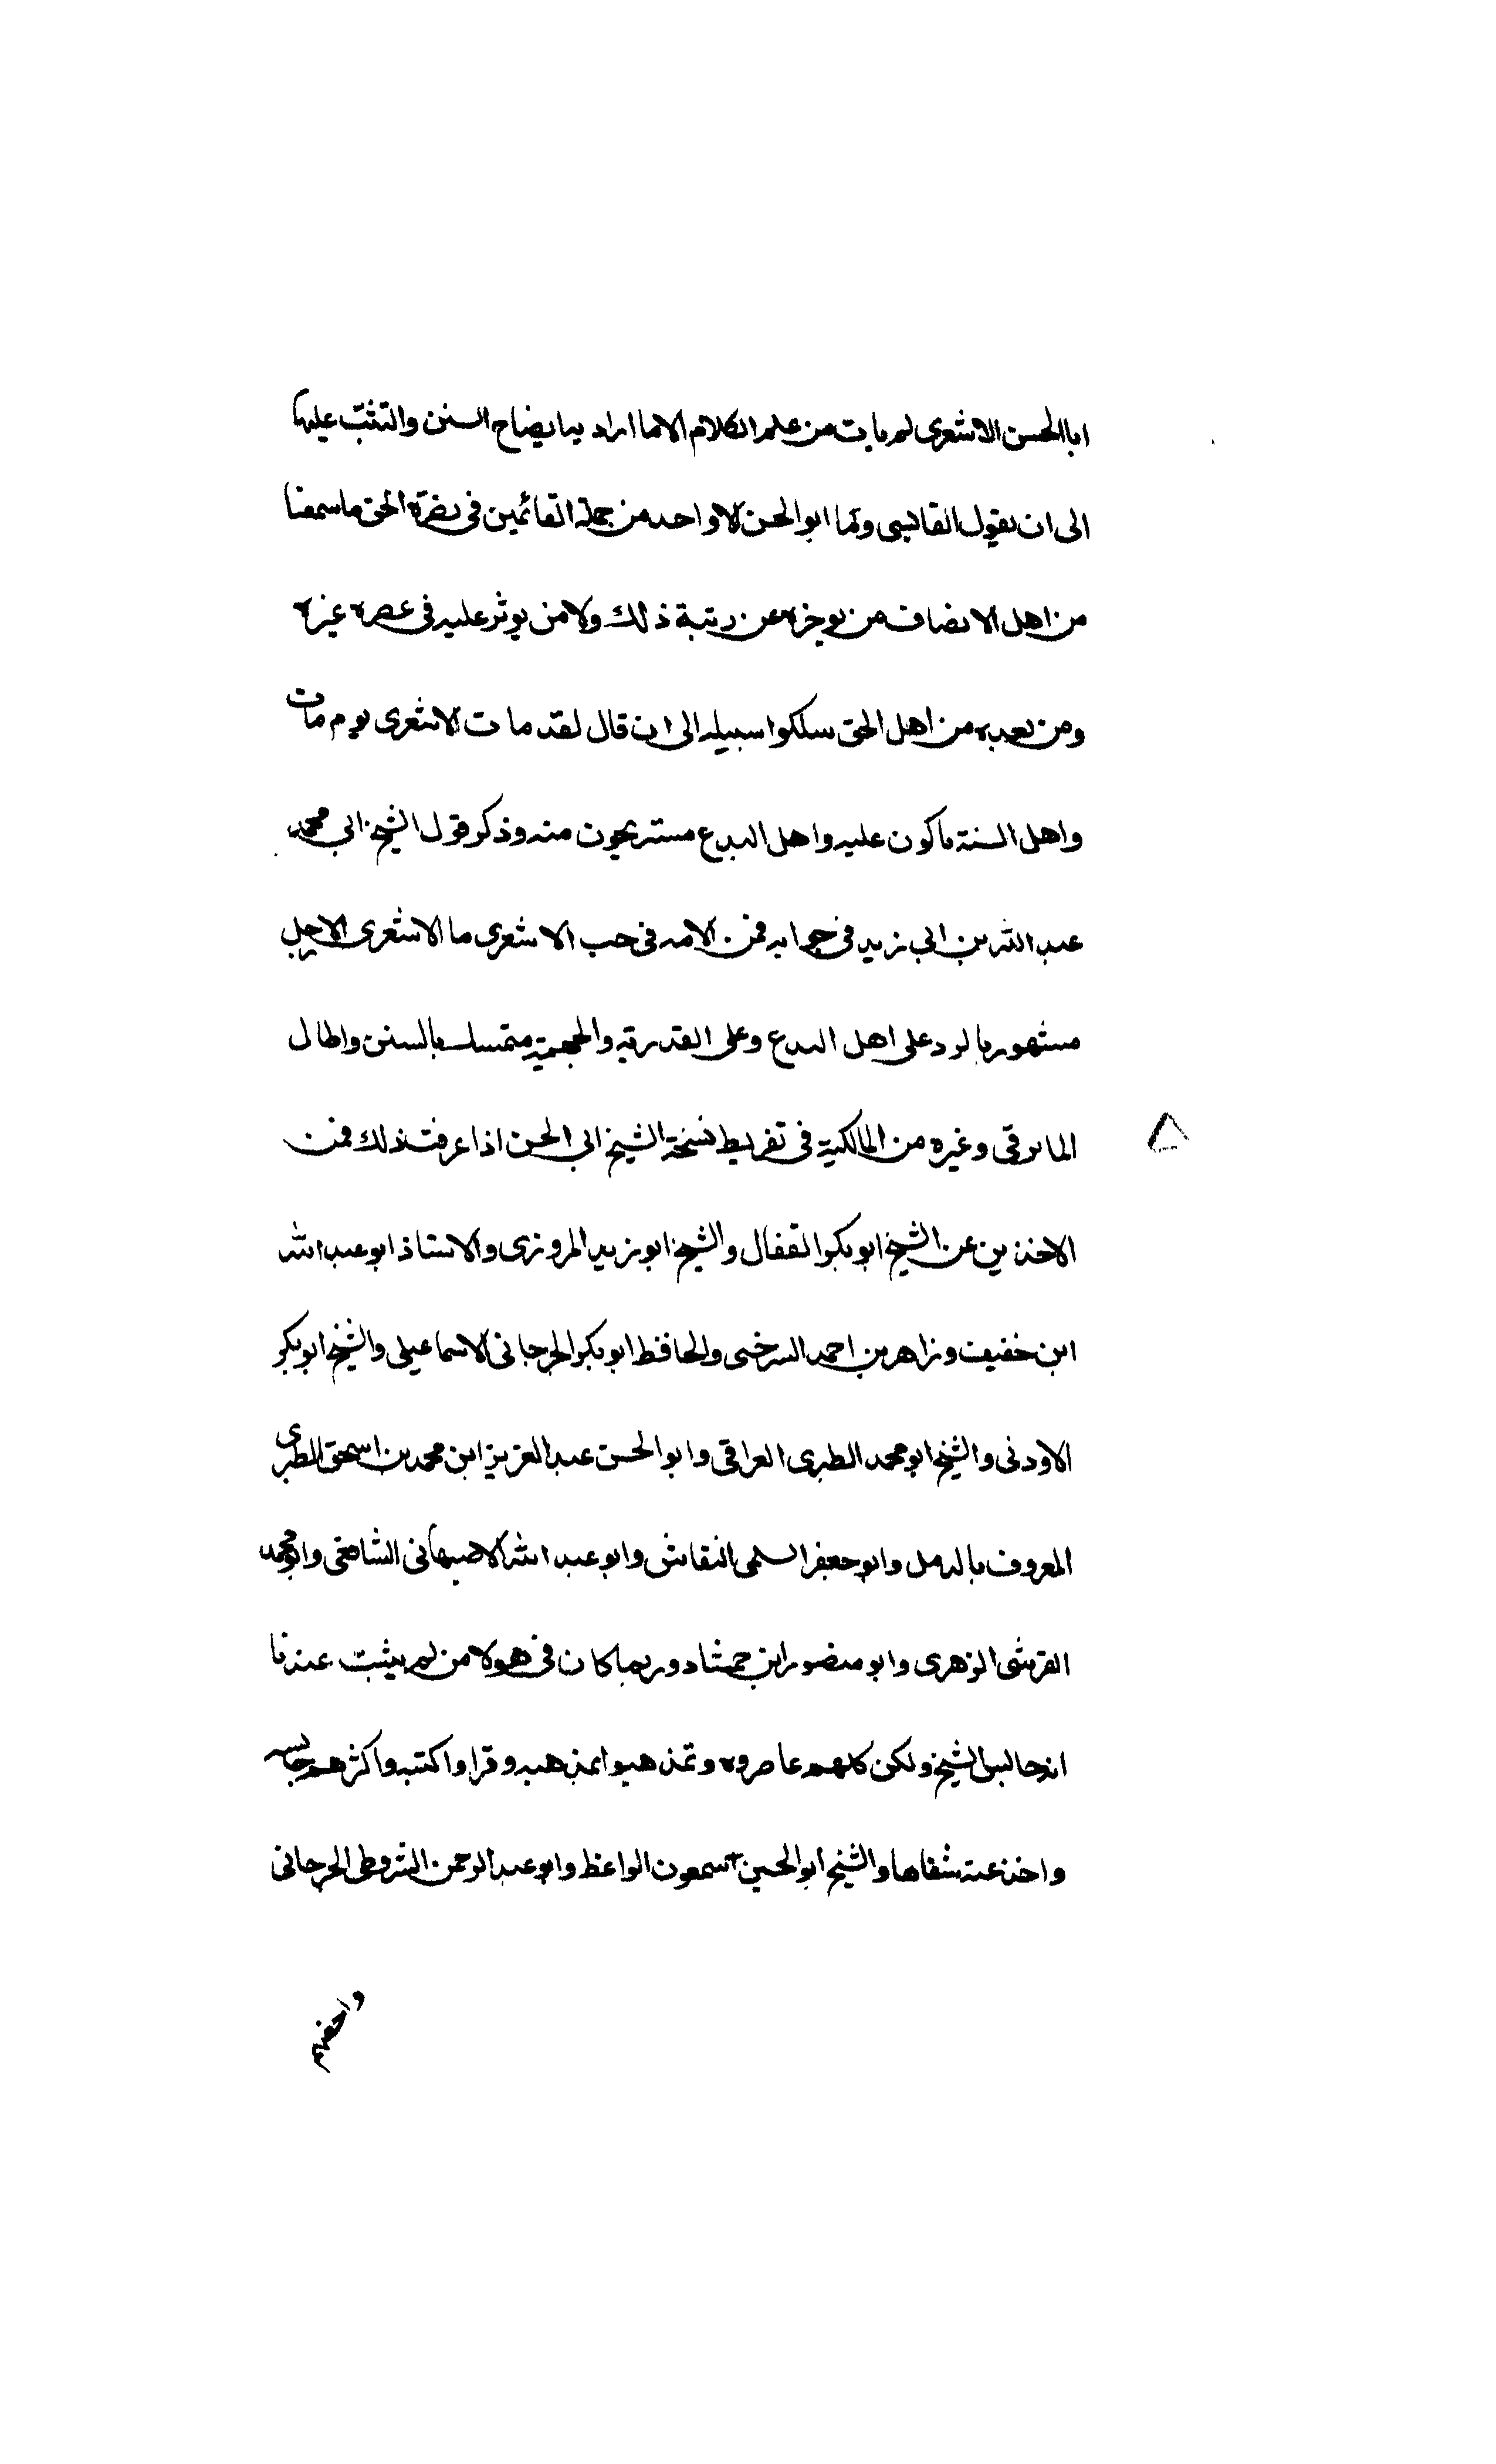 ابا الحسن الاشعرى لم يات من علم الكلام الا ما اراد به ايضاح السنن والتثبت عليها
الى ان يقول القابسى وما ابو الحسن الا واحد من جملة القائمين فى نصرة الحق ما سمعنا
من اهل الانصاف من يوخره عن رتبة ذلك ولا من يوثر عليه فى عصره غيره
ومن بعده من اهل الحق سلكوا سبيله الى ان قال لقد مات الاشعرى يوم مات
واهل السنة باكون عليه واهل البدع مستريحون منه وذكر قول الشيخ ابى محمد
عبد الله بن ابى زيد فى جوابه فمن لامه فى حب الاشعرى ما الاشعرى الا رجل
مشهور بالرد على اهل البدع وعلى القدرية والجهمية متمسك بالسنن واطال
المايرقى وغيره من المالكية فى تقريظ نسخة الشيخ ابى الحسن اذا عرفت ذلك فمن
الاخذين عن الشيخ ابو بكر القفال والشيخ ابو زيد المروزى والاستاذ ابو عبد الله
ابن خفيف وزاهر بن احمد السرخسى والحافظ ابو بكر الجرجانى الاسماعيلى والشيخ ابو بكر
الاودنى والشيخ ابو محمد الطبرى العراقى وابو الحسن عبد العزيز ابن محمد بن اسحق الطبرى
المعروف بالدمل وابو جعفر السلمى النقاش وابو عبد الله الاصبهانى الشافعى وابو محمد
القرشى الزهرى وابو منصور ابن حمشاد وربما كان فى هولا من لم يثبت عندنا
انه جالس الشيخ ولكن كلهم عاصروه وتمذهبوا بمذهبه وقراوا كتبه واكثرهم جالسه
واخذ عنه شفاها والشيخ ابو الحسين سمعون الواعظ وابو عبد الرحمن الشروطى الجرجانى